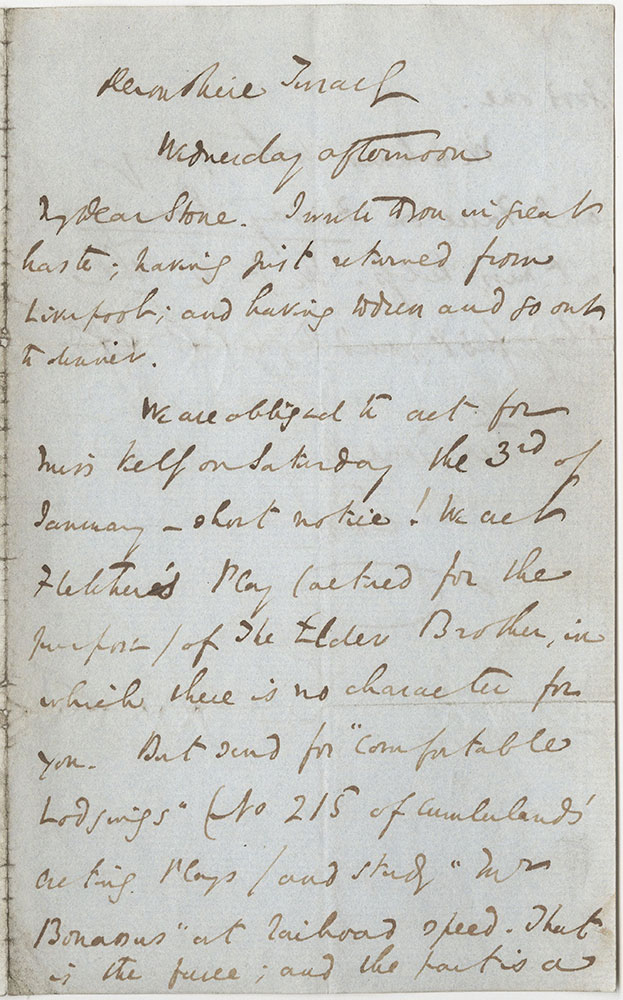 Devonshire Terrace
Wednesday afternoon
My Dear Stone. I write to you in great
haste; having just returned from
Liverpool; and having to dress and go out
to dinner.
We are obliged to act for
Miss Kelly on Saturday the 3rd of
January – short notice! We act
Fletcher's Play (altered for the
purpose) of The Elder Brother, in
which there is no character for
you. But send for "Comfortable
Lodgings" (No 215 of Cumberland's
acting Plays) and study "Mr
Bonassus" at railroad speed. That
is the farce; and the part is a